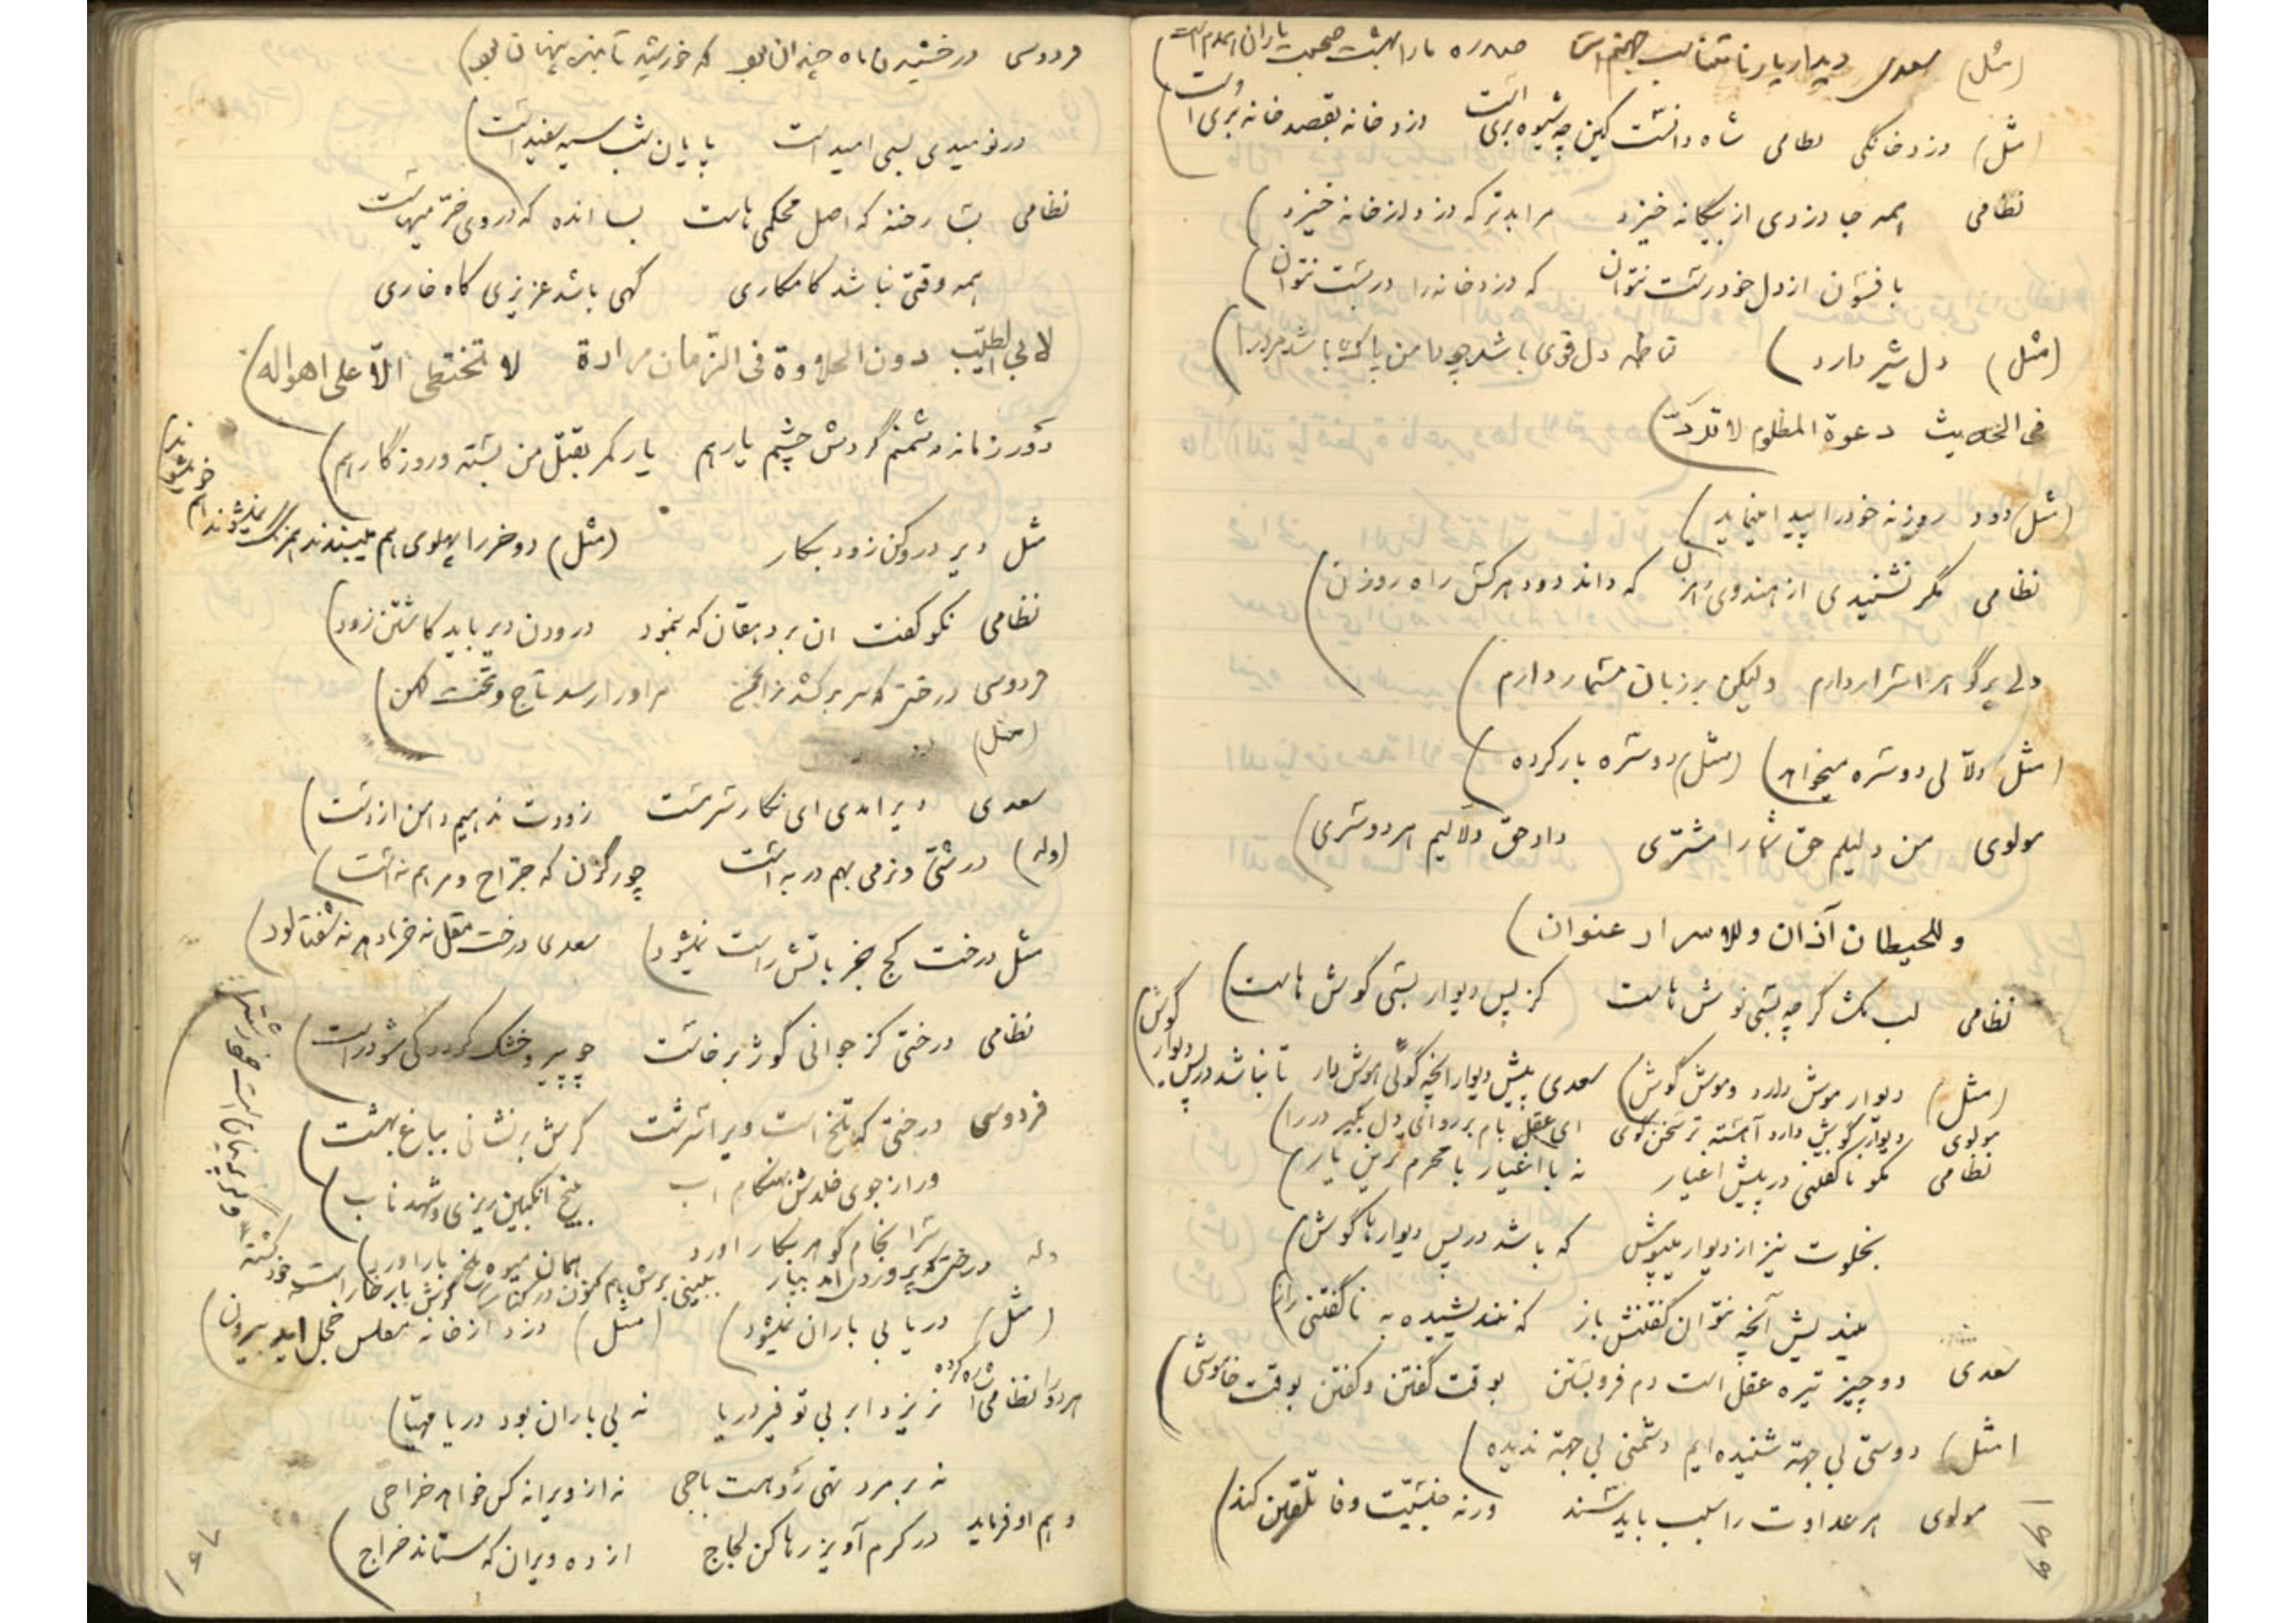 (مثل) سعدی دیدار یار نامتناسب جهنم است صد ره مارا بهشت صحبت یاران همدم است
(مثل) دزد خانگی نظامی شاه دانست کین چه شیوه بری است دزد خانه بقصد خانه بری است
نظامی همه جا دزدی از بیگانه خیزد مرا بدتر که دزد از خانه خیزد
بافسون از دل خود رست نتوان که دزد خانه را در بست نتوان
(مثل) دل شیر دارد) دل قوی باشد چو دامن پاک باشد مرد را
فی الحدیث دعوة المظلوم لا تردّ
(مثل) دود روزنه خود را پیدا مینماید
نظامی مگر نشنیدی از هندوی که داند دود هر کس راه روزن
دلی پر گوهر اسرار دارم ولیکن بر زبان مسمار دارم
(مثل) دلّالی دوسره میخواهد) (مثل) دوسره بار کرده
مولوی من دلیلم حق شما را مشتری داد حق دلّالیم هر دو سری
وللحیطان آذان وللاسرار عنوان
نظامی لب مگشا گرچه بشبی نوش هاست کز پس دیوار بسی گوش هاست
(مثل) دیوار موش دارد و موش گوش) سعدی پیش دیوار انچه گوئی هوش دار تا نباشد در پس دیوار گوش
مولوی دیوار گوش دارد آهسته تر سخن گوی ای عقل بام بر رو ای دل بگیر در را
نظامی مگو ناگفتنی در پیش اغیار نه با اغیار با محرم ترین یار
بخلوت نیز از دیوار میپوش که باشد در پس دیوارها گوش
میندیش آنچه نتوان گفتنش باز که نندیشیده به ناگفتنی راز
سعدی دو چیز تیره عقل است دم فرو بستن بوقت گفتن و گفتن بوقت خاموشی
(مثل) دوستی بی جهة شنیده ایم دشمنی بی جهة ندیده
مولوی هر عداوت را سبب باید سند ورنه جنسیّت وفا تلقین کند
۱۶۶
فردوسی درخشیدن ماه چندان بود که خورشید تابنده پنهان بود
در نومیدی بسی امید است پایان شب سیه سفید است
نظامی بسا رخنه که اصل محکمی هاست بسا انده که در وی خرّمیهاست
همه وقتی نباشد کامکاری گهی باشد عزیزی گاه خاری
لابی الطیّب دون الحلاوة فی الزّمان مرارة لا تختطی الّا علی اهواله
دور زمانه دشمنم گردش چشم یار هم یار کمر بقتل من بسته و روزگار هم
مثل دیر درو کن زود بکار (مثل) دو خر را پهلوی هم میبندند همرنگ نمیشوند هم خو میشوند
نظامی نکو گفت ان بر دهقان که بنمود درودن دیر باید کاشتن زود
فردوسی درختی که سر برکشد ز انجمن مر او را رسد تاج و تخت کهن
(مثل)
سعدی دیر امدی ای نگار سرمست زودت ندهیم دامن از دست
(وله) درشتی و نرمی بهم در به است چو رگزن که جرّاح و مرهم نه است
مثل درخت کج جز باتش راست نمیشود) سعدی درخت مقل نه خرما دهد نه شفتالود
نظامی درختی کز جوانی کوژ برخاست چو پیر و خشک گردد کی شود راست
فردوسی درختی که تلخ است ویرا سرشت گرش بر نشانی بباغ بهشت
ور از جوی خلدش بهنگام اب ببیخ انگبین ریزی و شهد ناب
سرانجام گوهر بکار اورد همان میوه تلخ بار اورد
وله درختی که پروردی امد ببار ببینی برش هم کنون در کنار گرش بار خار است خود کشته وگر پرنیان است خود رشته
(مثل) دریا بی باران نمیشود) (مثل) دزد از خانه مفلس خجل اید بیرون
هر دو را نظامی اشاره کرده نریزد ابر بی توفیر دریا نه بی باران بود دریا مهیّا
نه بر مرد تهی رو هست باجی نه از ویرانه کس خواهد خراجی
و هم او فرماید در کرم آویز رها کن لجاج از ده ویران که ستاند خراج
۱۶۷